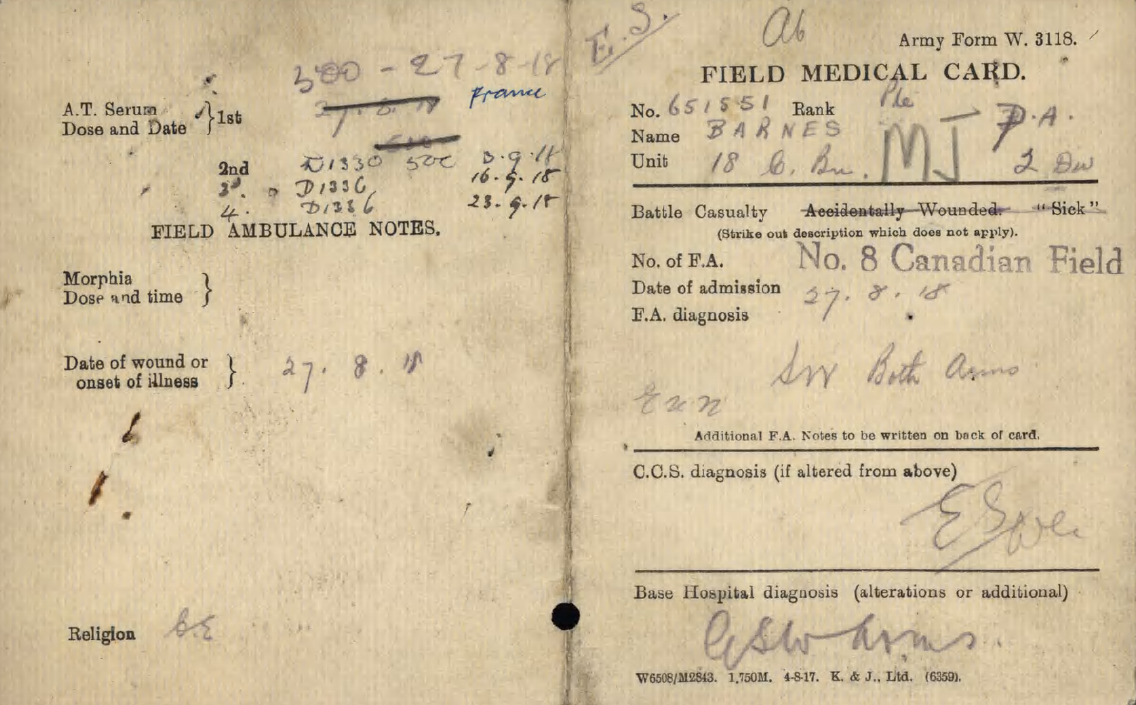 500 - 27-8-18
27.8.18 France
A.T. Serum
Dose and Date } 1st
2nd D1330 500 3.9.18
3rd " D1336 16.9.18
4. D1336 23.9.18
FIELD AMBULANCE NOTES.
Morphia
Dose and time }
Date of wound or
onset of illness } 27. 8. 18
Religion CE
E.S.
Army Form W. 3118.
FIELD MEDICAL CARD.
No. 651551 Rank Pte
Name BARNES D.A.
Unit 18 C. Bn. MJ 2 Div
Battle Casualty Accidentally Wounded. "Sick"
(Strike out description which does not apply).
No. of F.A. No. 8 Canadian Field
Date of admission 27. 8. 18
F.A. diagnosis
SW Both Arms
Additional F.A. Notes to be written on back of card.
C.C.S. diagnosis (if altered from above)
Base Hospital diagnosis (alterations or additional)
GSW Arms.
W6508/M2843. 1,750M. 4-8-17. K. & J., Ltd. (6359).